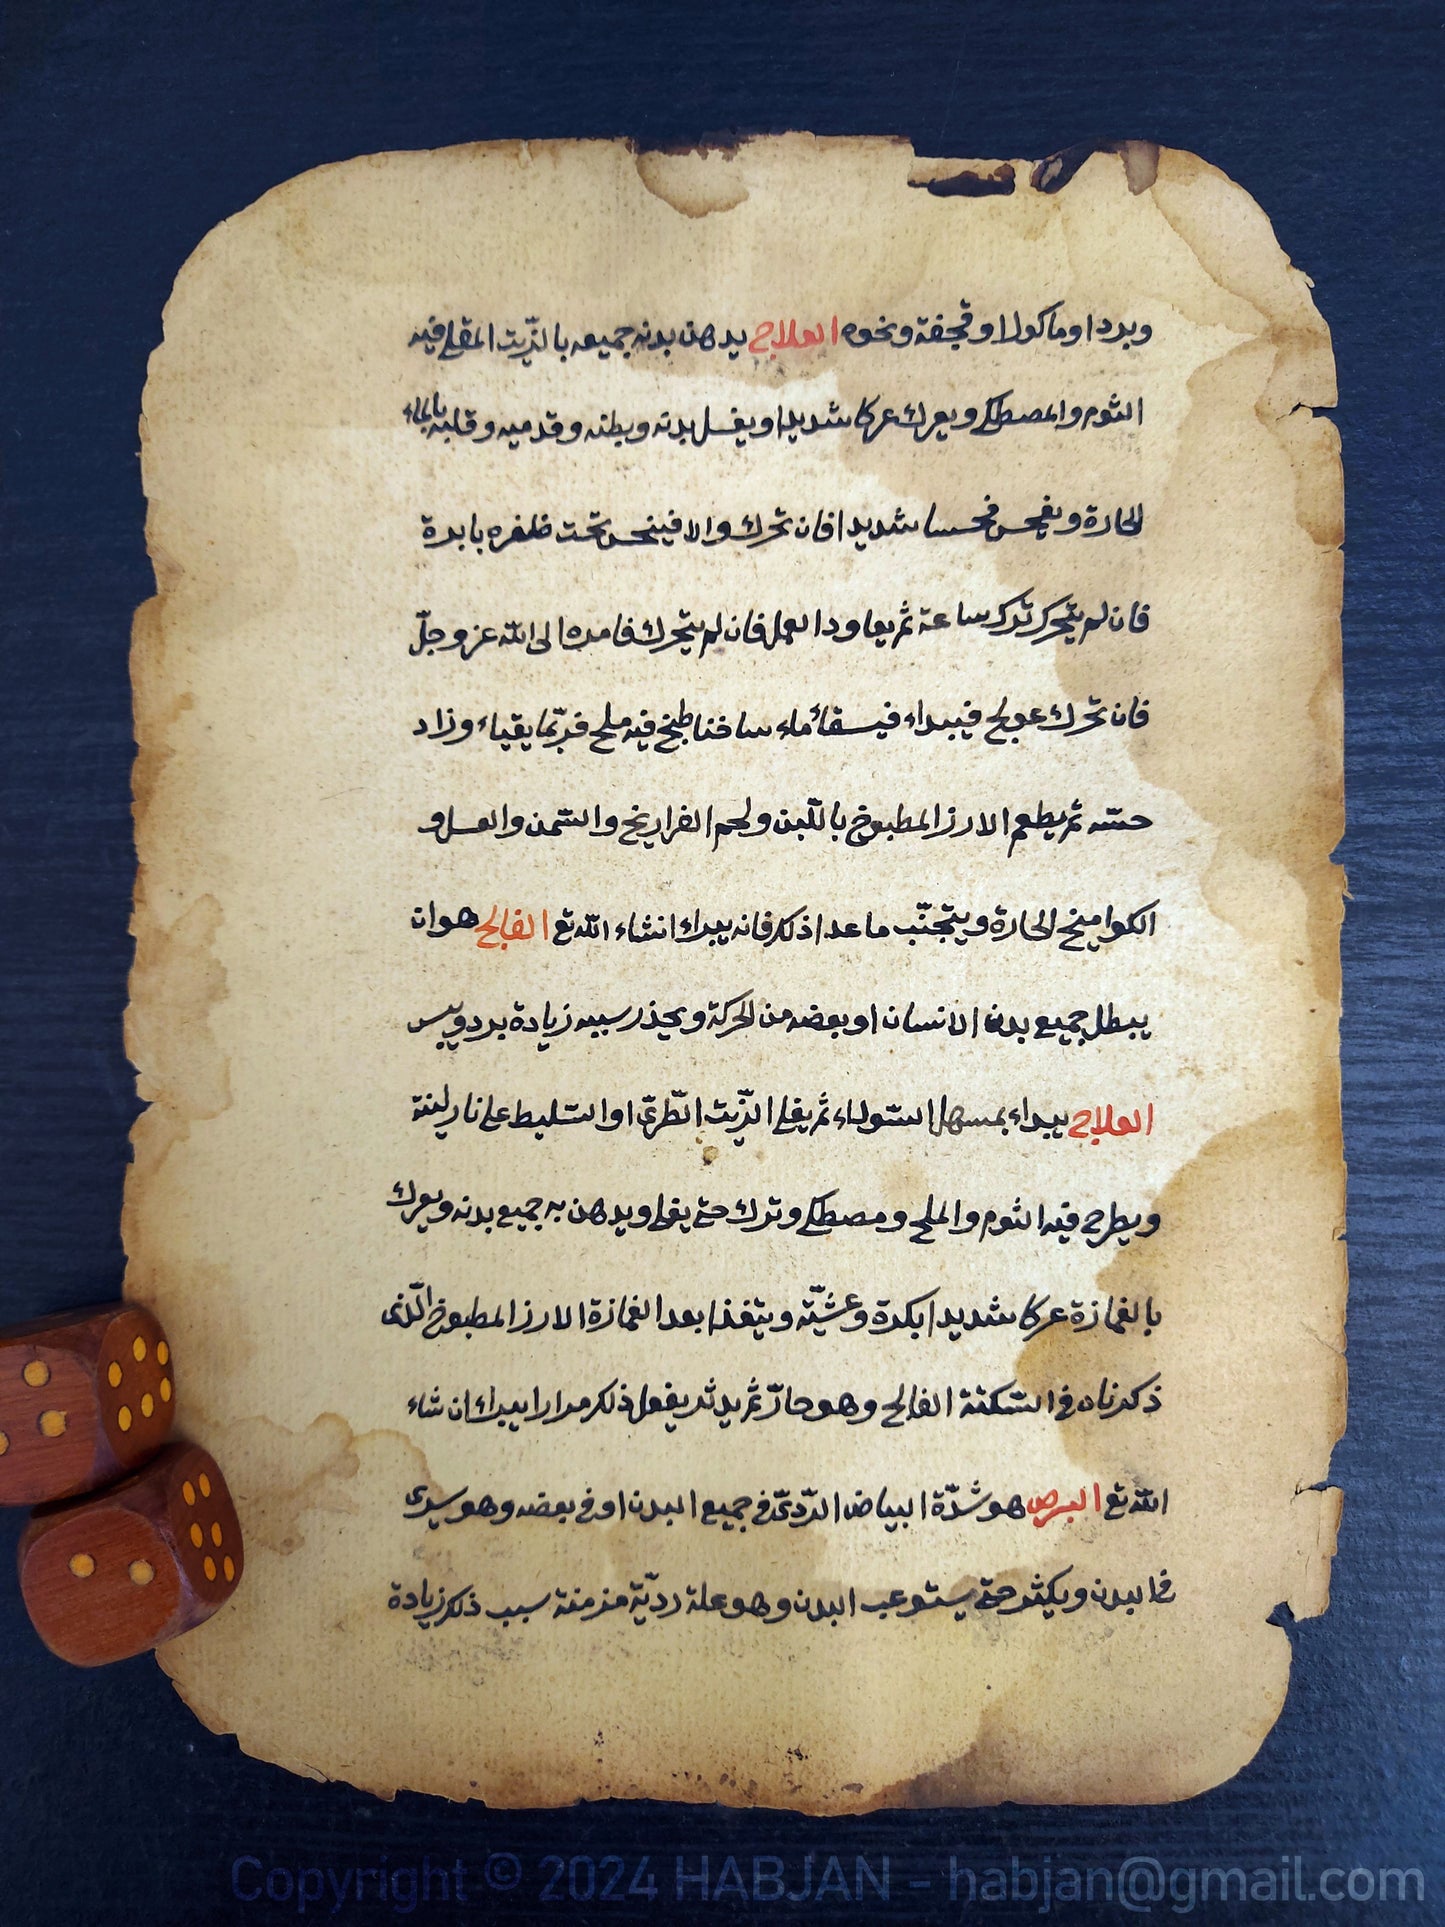 وبردا وماكولا وقحفة ونحوه العلاج يدهن بدنه جميعه بالزّيت المقلے فيه
الثوم والمصطكے ويعرك عركا شديدا ويغسل بدنه وبطنه وقدميه وقلبه بالماء
الحارة ويفحس فحسا شديدا فان تحرك والا فينخس تحت ظفره بابرة
فان لم يتحرك ترك ساعة ثم يعاود العمل فان لم يتحرك فامره الى اللّه عز وجلّ
فان تحرك عولج فيبداء فيسقاٴ ماء ساخنا طبخ فيه ملح فربّما يقياء وزاد
حسّه ثم يطعم الارز المطبوخ باللّبن ولحم الفراريخ والسّمن والعسل و
الكواميخ الحارة ويتجنّب ما عدا ذلك فانه يبراء انشاء اللّه تع الفالج هو ان
يبطل جميع بدن الانسان او بعضه من الحركة ويخذر سببه زيادة برد ويبس
العلاج يبداء بمسهل السّوداء ثم يغلے الزّيت الطّرىّ او السّليط علے نار لينة
ويطرح فيه الثوم والملح ومصطكے وترك حتے يغلے ويدهن به جميع بدنه ويعرك
بالغمازة عركا شديدا بكرة وعشيّة ويتغذا بعد الغمازة الارز المطبوخ الّذى
ذكرناه فے السّكتة الفالج وهو حارّ ثم يدثر يفعل ذلك مرارا يبراء ان شاء
اللّه تع البرص هو شدّة البياض الرّدىّ فے جميع البدن او فے بعضه وهو يسرى
فے البدن ويكثر حتے يستوعب البدن وهو علة رديّة مزمنة سبب ذلك زيادة
Copyright © 2024 HABJAN - habjan@gmail.com